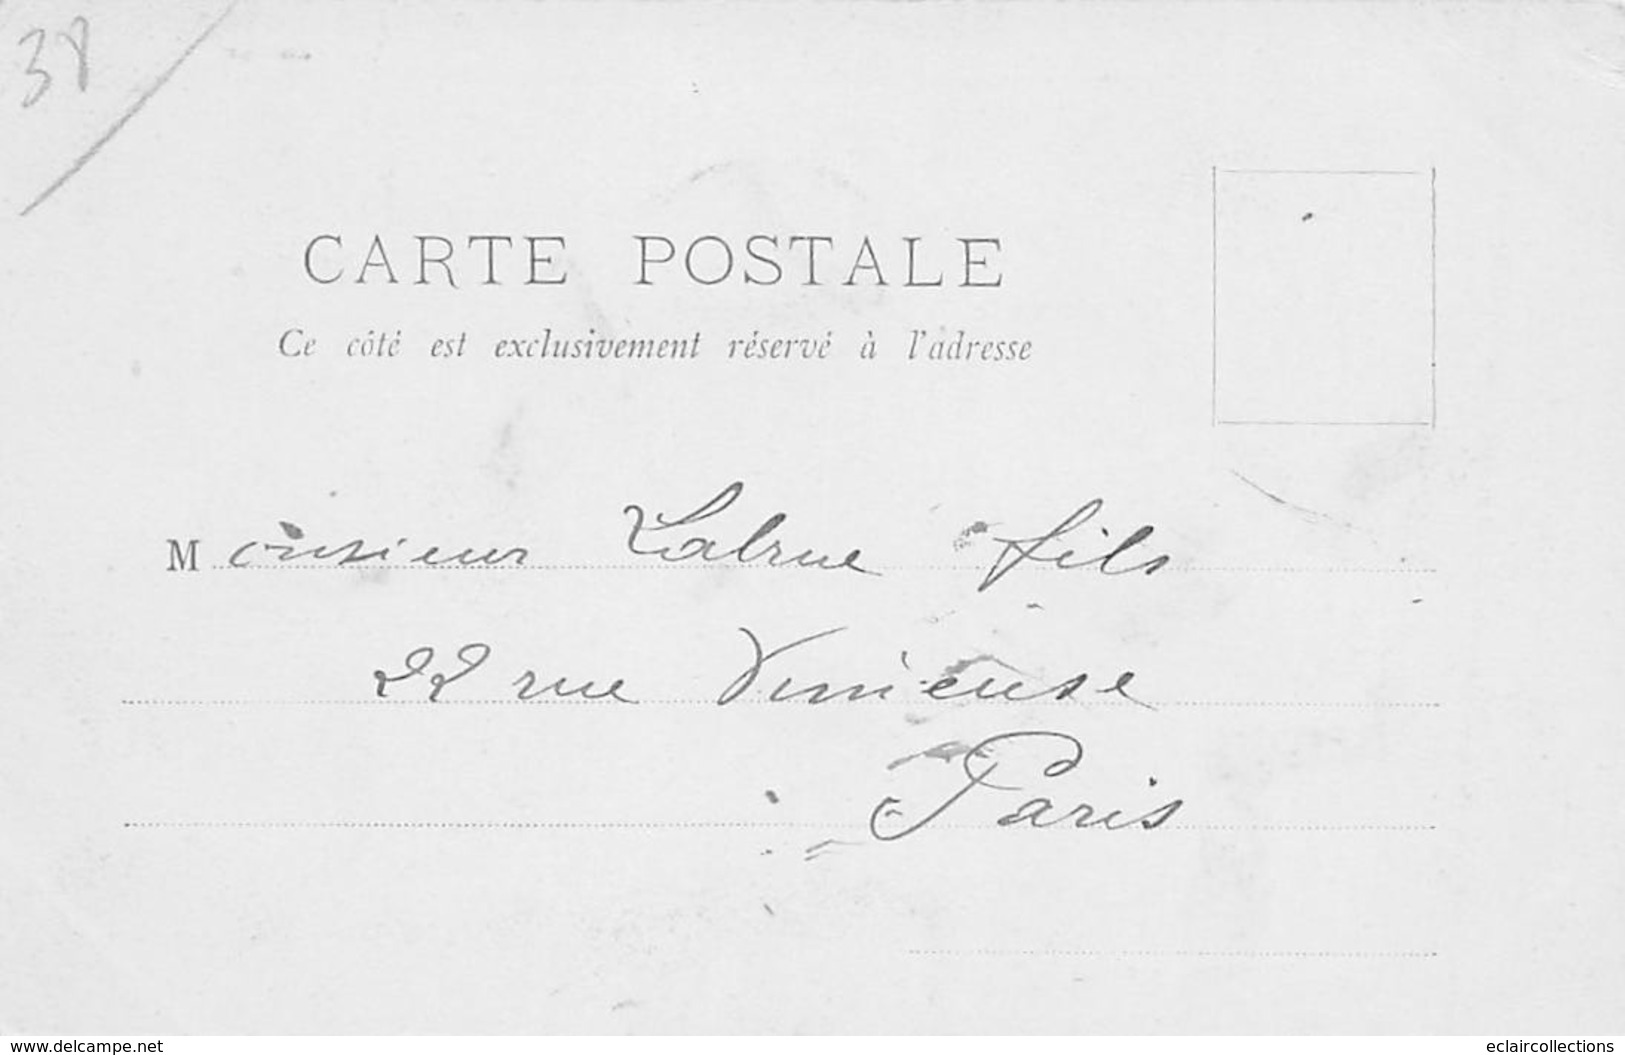 38
CARTE POSTALE
Ce côté est exclusivement réservé à l'adresse
Monsieur Labrue fils
22 rue Vineuse
Paris
www.delcampe.net
eclaircollections